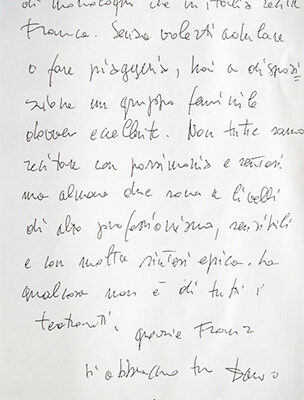 di monologhi che in Italia recita
Franca. Senza volerti adulare
o fare piaggeria, hai a disposi
zione un gruppo feminile
davver eccellente. Non tutte sanno
recitare con possimonia e
ma almeno due sono a livelli
di alto professionismo, sensibili
e con molta sintesi epica. La
qual cosa non è di tutti i
teatranti. grazie Franz
ti abbraccio tuo Dario